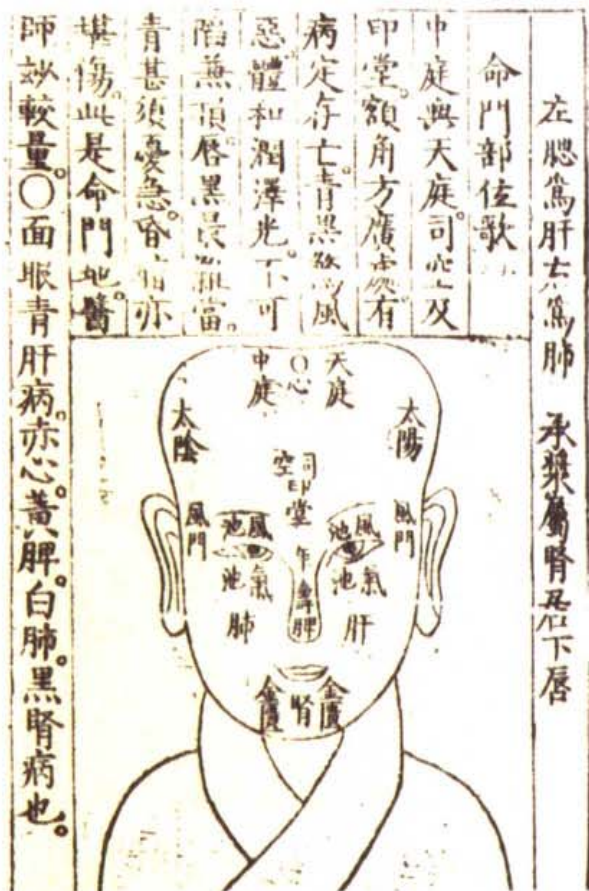 左腮爲肝右爲肺　承漿屬腎居下唇
命門部位歌
中庭與天庭。司空及
印堂。額角方廣處。有
病定存亡。青黑驚風
惡。體和潤澤光。不可
陷兼損。唇黑最難當。
青甚須憂急。昏暗亦
堪傷。此是命門地。醫
師妙較量。〇面眼青肝病。赤心。黃脾。白肺。黑腎病也。
天庭
〇心
中庭
太陽
太陰
司空
印堂
風門
風池
氣池
年
風池
氣池
風門
肝
脾
肺
金匱
腎
金匱